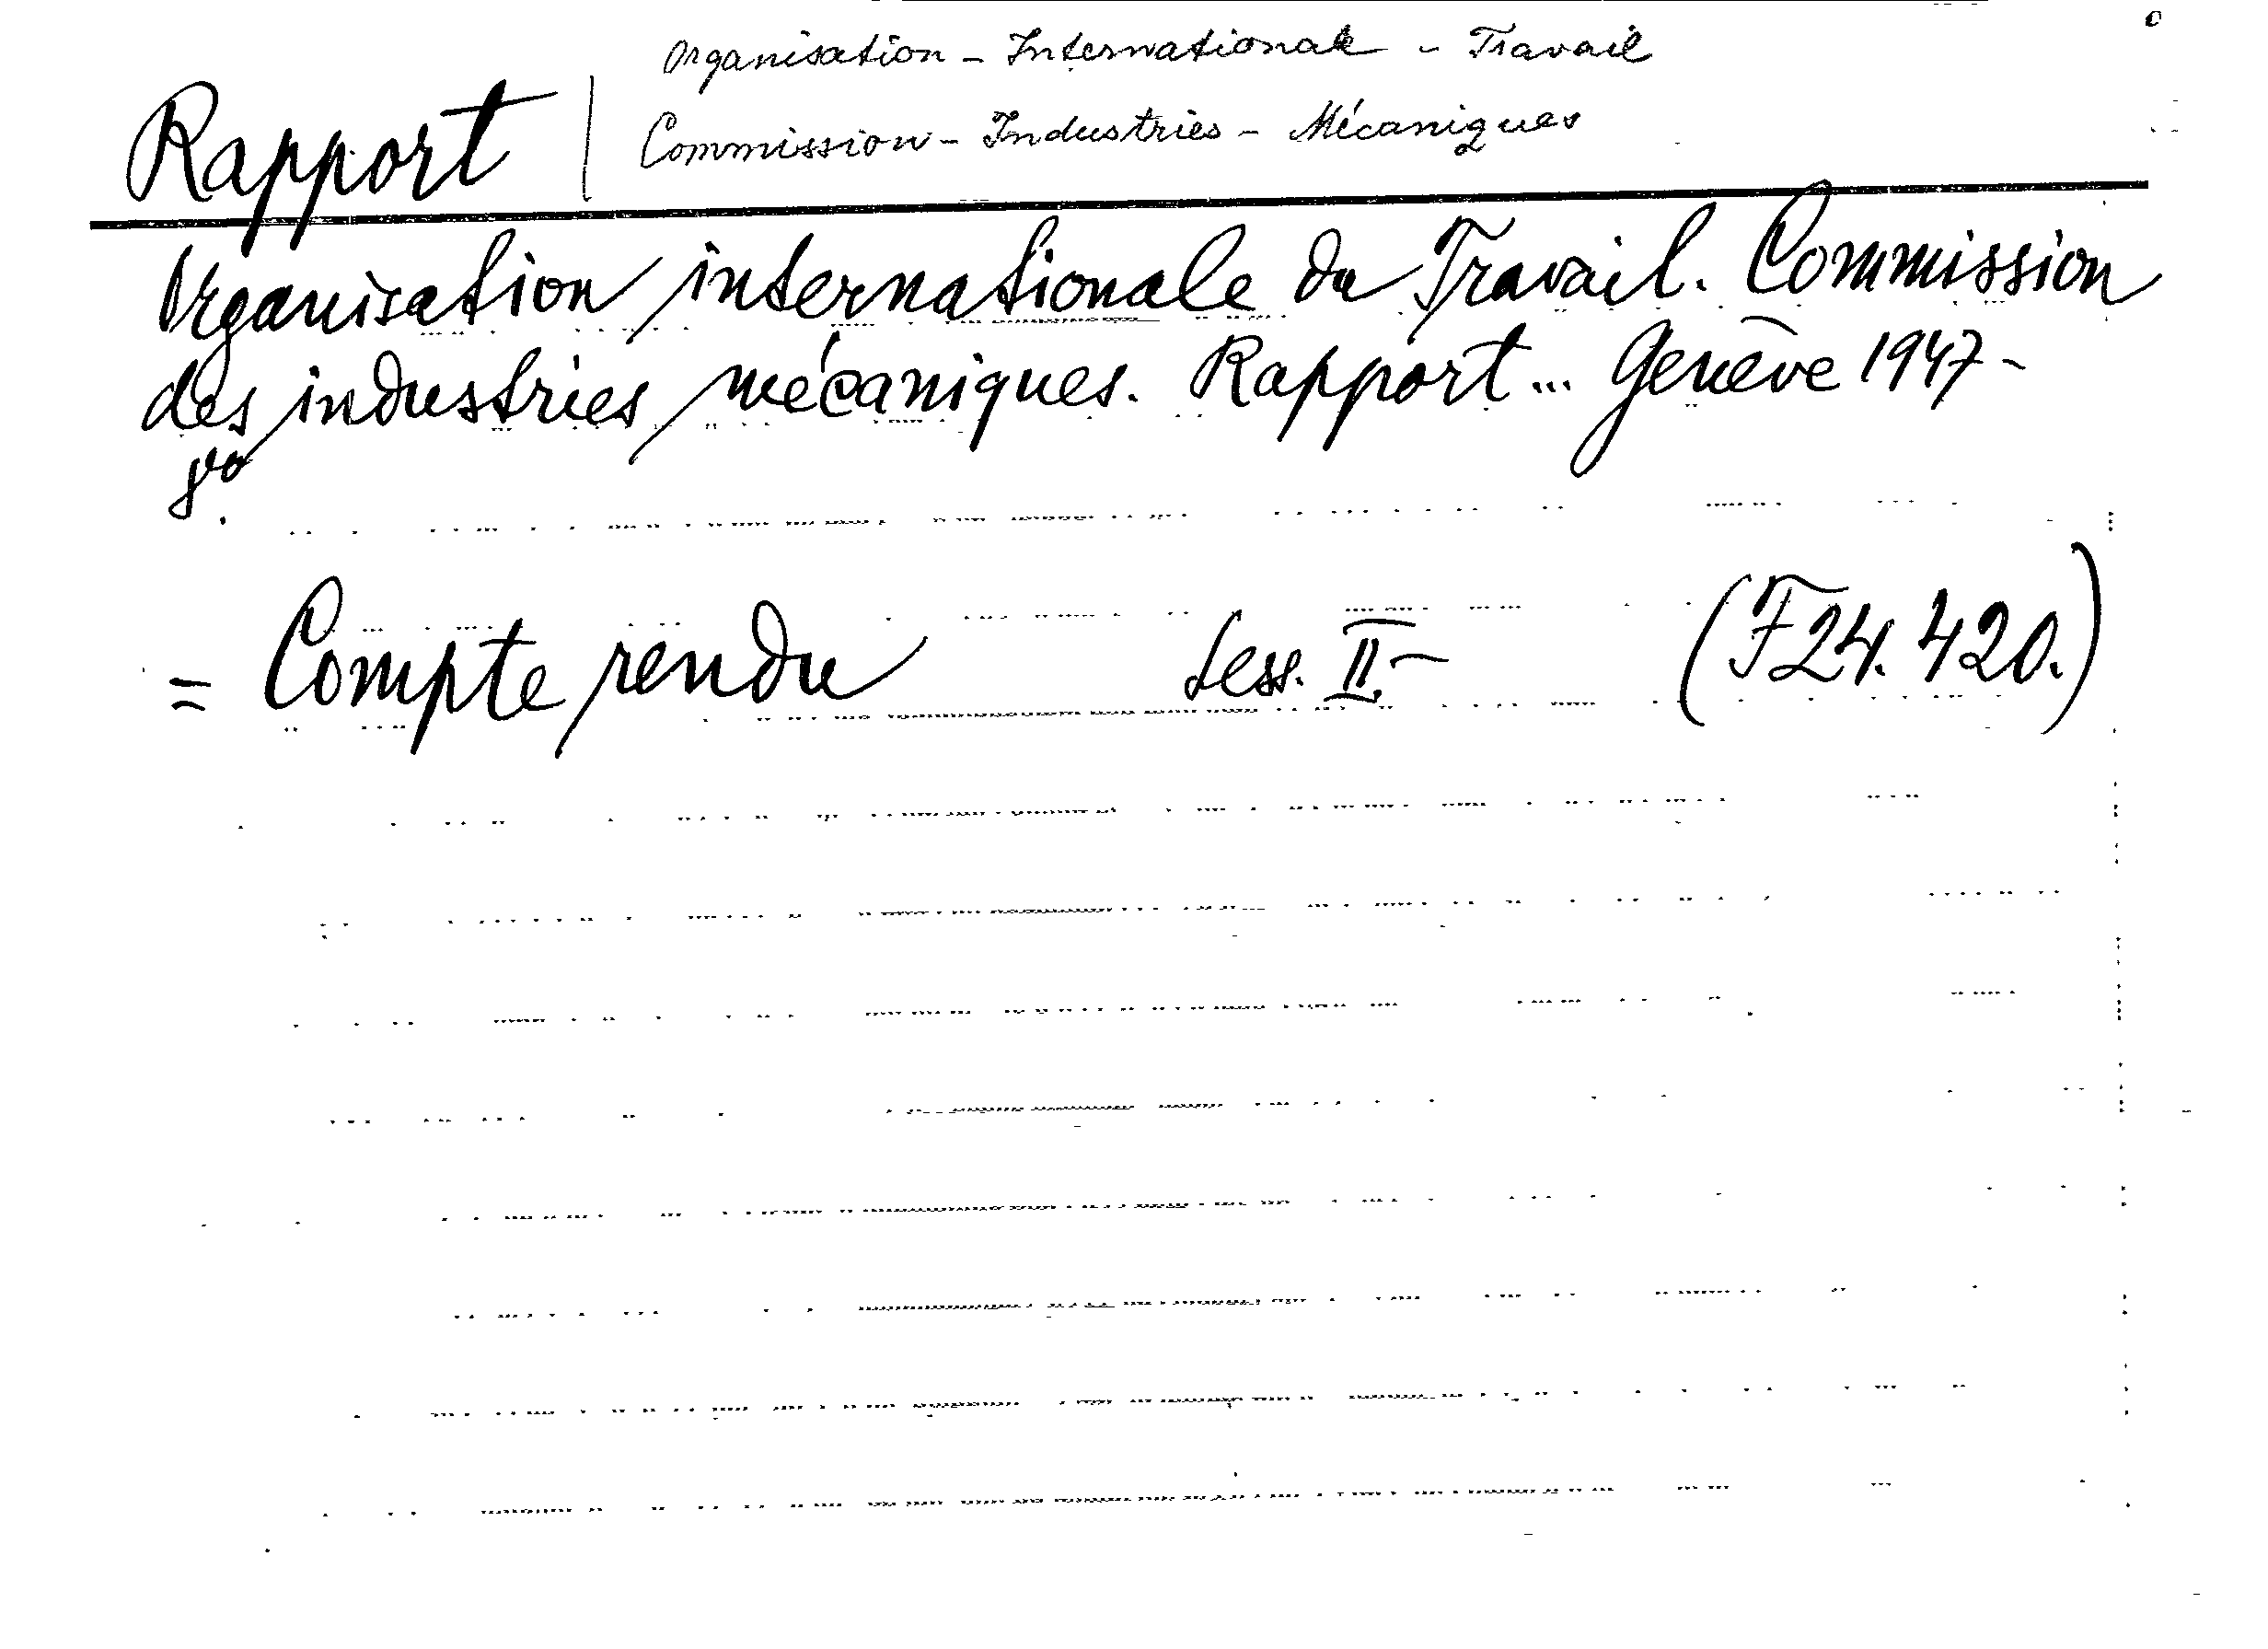 Organisation - Internationale - Travail
Rapport | Commission - Industries - Mécaniques
Organisation internationale du Travail. Commission
des industries mécaniques. Rapport... Genève 1947-
8vo.
= Compte rendu Sess. II- (F24.420.)